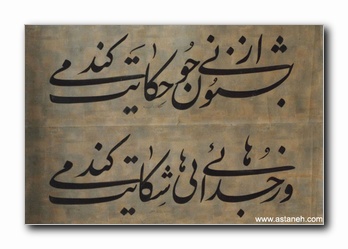 بشنو از نی چون حکایت می کند
وز جدائی ها شکایت می کند
www.astaneh.com